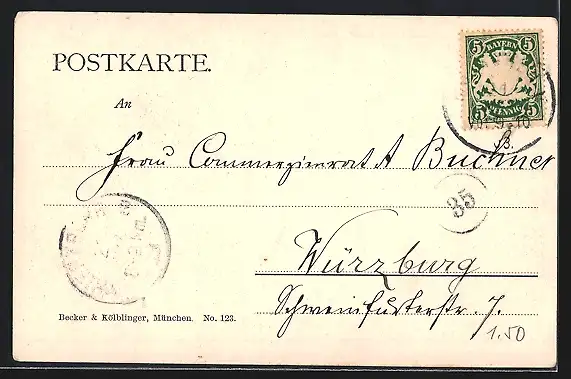 POSTKARTE.
5 BAYERN 5
5 PFENNIG 5
An
Frau Commerzienrat A Buchner
35
Würzburg
Schweinfurterstr. 7.
Becker & Kölblinger, München. No. 123.
1.50